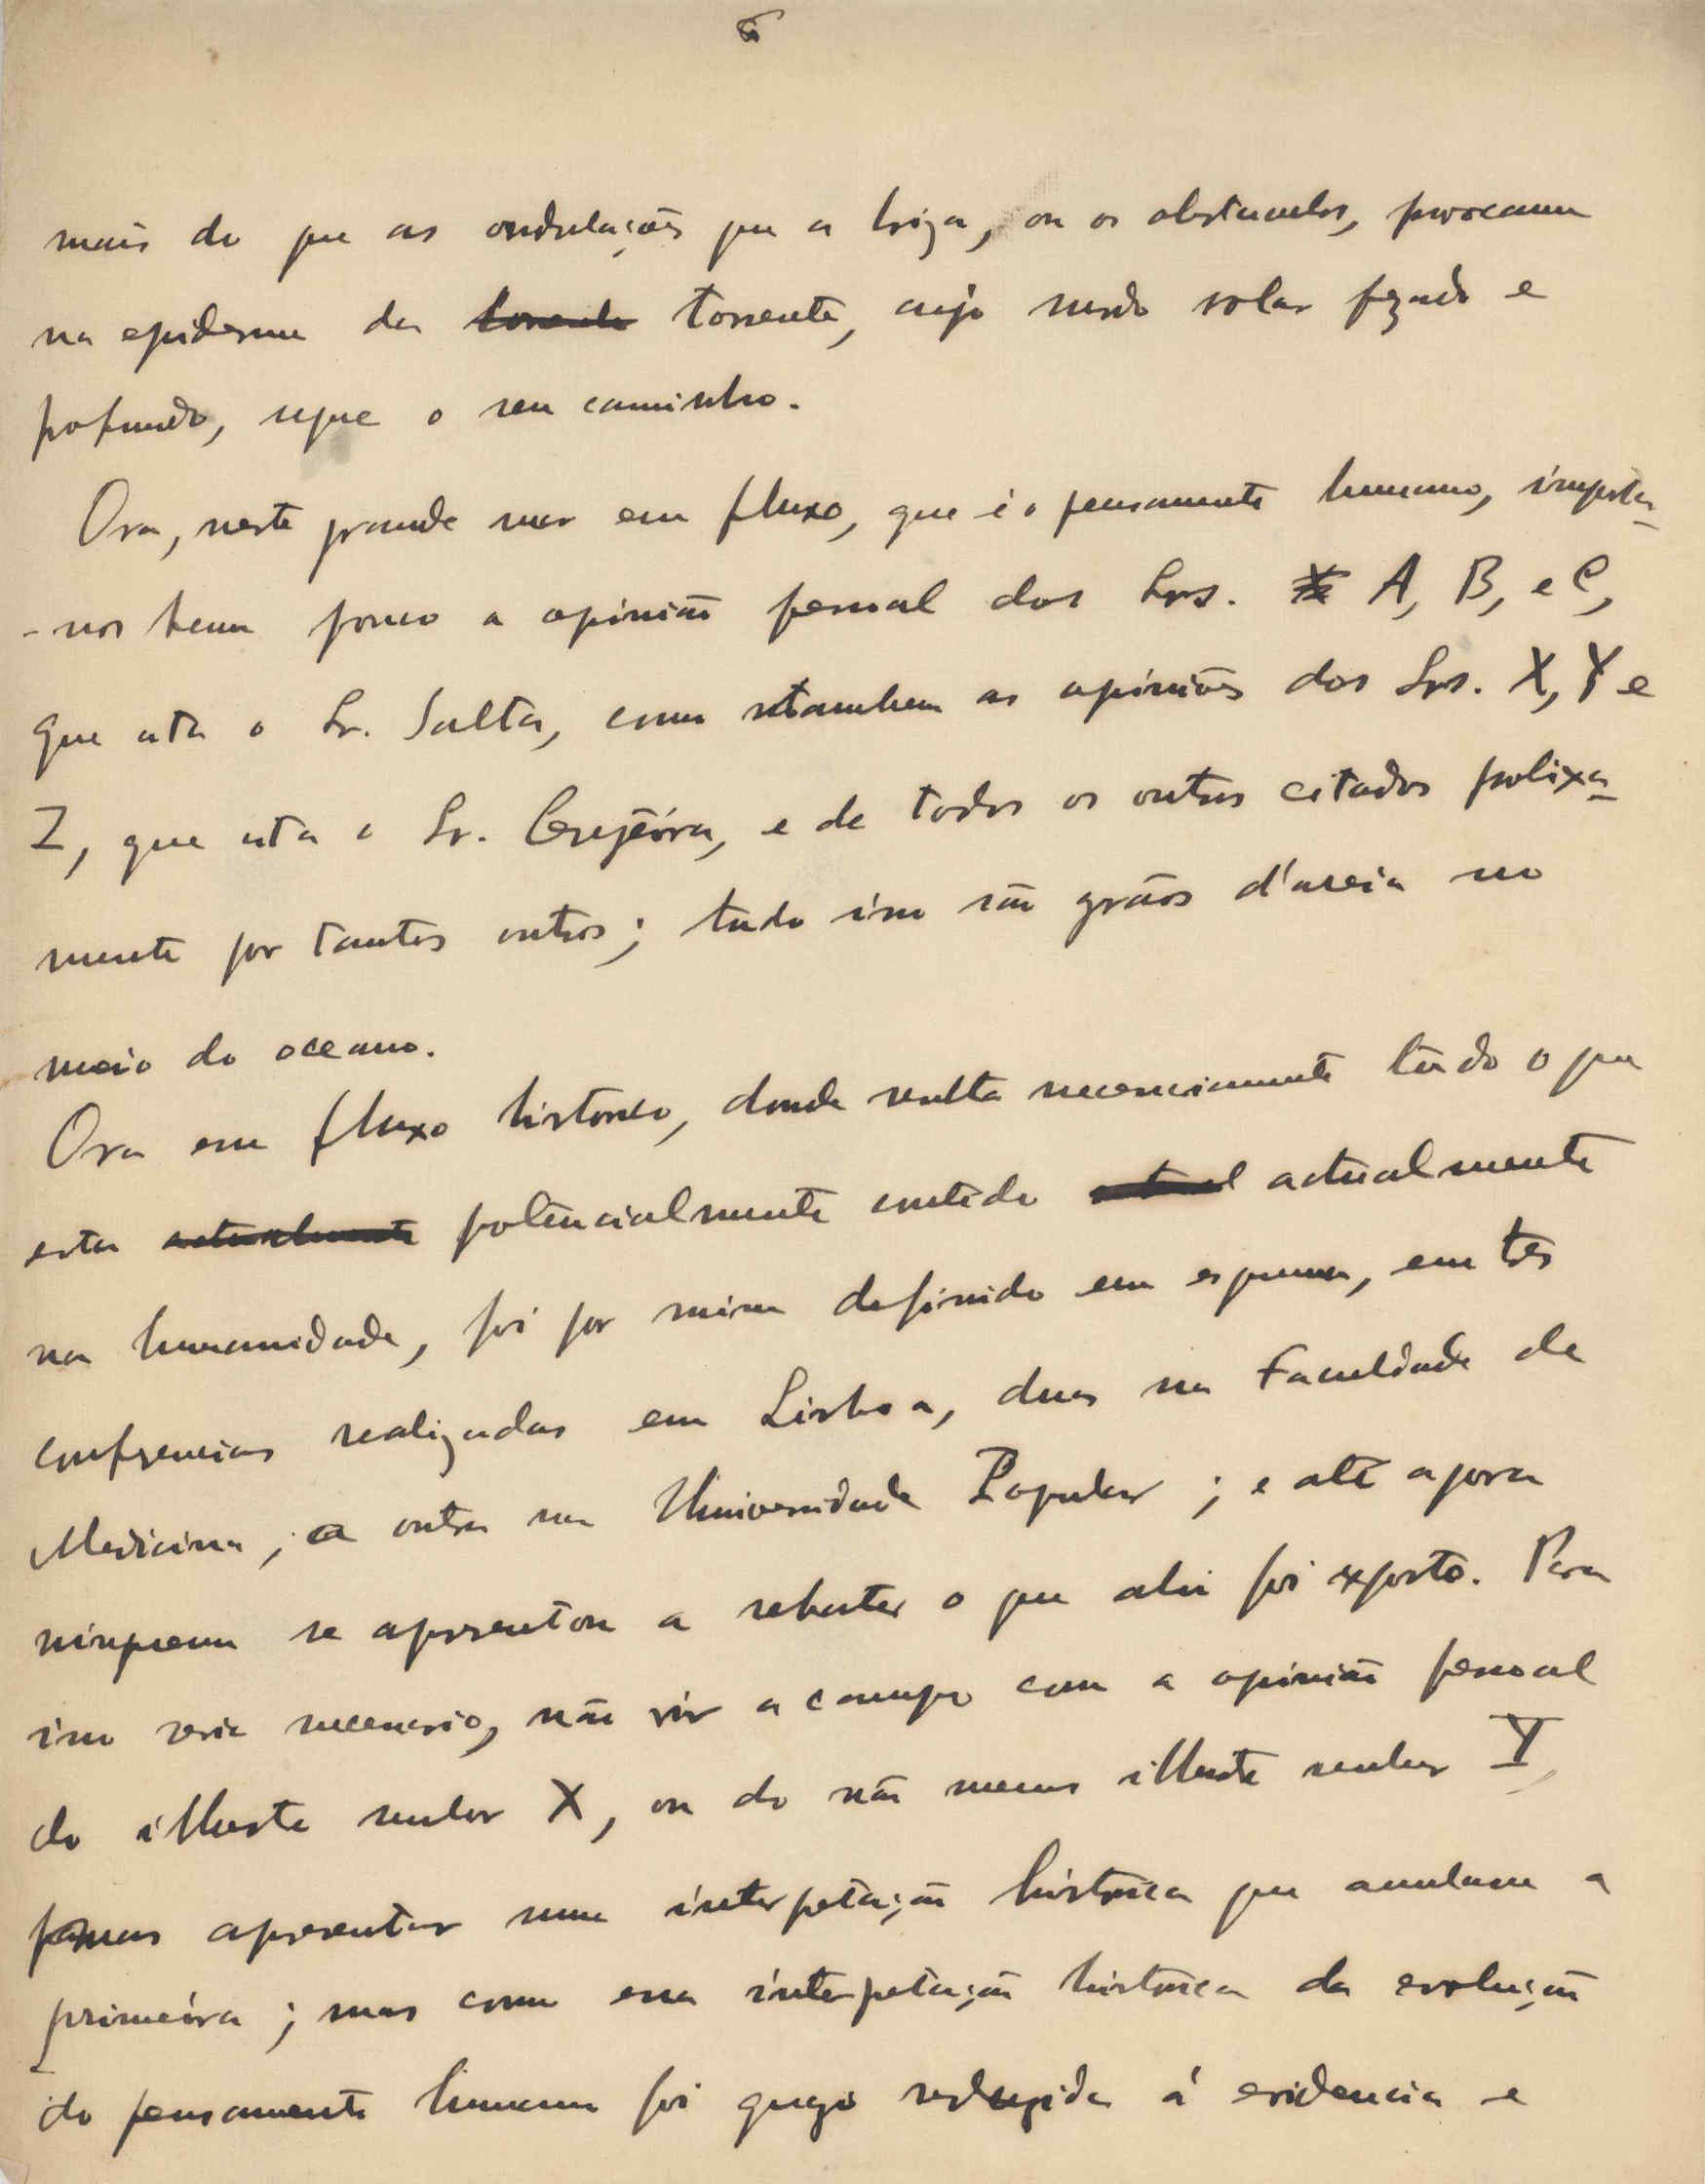 6
mais do que as ondulações que a briza, ou os obstaculos, provocam
na epiderme da torrente, cujo rolar fazendo e
profundo, segue o seu caminho.
Ora, neste grande mar em fluxo, que é o pensamento humano, importa-
-nos bem pouco a opinião pessoal dos Srs. A, B, e C,
que cita o Sr. Salta, como tambem as opiniões dos Srs. X, Y e
Z, que cita o Sr. Cerejeira, e de todos os outros citados prolixa-
mente por tantos outros; tudo isso são grãos d'areia no
meio do oceano.
Ora em fluxo historico, donde resulta necessariamente tudo o que
esta potencialmente contido actualmente
na humanidade, foi por mim definido em esquema, em tres
conferencias realizadas em Lisboa, duas na Faculdade de
Medicina, a outra na Universidade Popular; e até agora
ninguem se apresentou a rebater o que ahi foi exposto. Para
isso seria necessario, não vir a campo com a opinião pessoal
do illustre senhor X, ou do não menos illustre senhor Y,
mas apresentar uma interpetação histórica que anulasse a
primeira; mas como essa interpetação histórica da evolução
do pensamento humano foi quazi reduzida á evidencia e